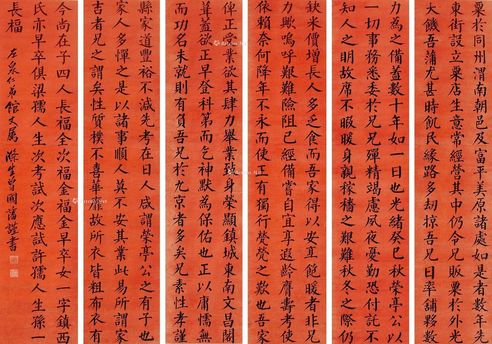 粟於同州渭南朝邑及富平美原諸處如是者數年先
東街設立粟店生意常經營其中仍令兄販粟於外光
大饑吾蒲尤甚時飢民緣路多刼掠吾兄日率舖夥數
力為之備蓋數十年如一日也光緒癸巳秋榮亭公以
一切事務悉委於兄兄殫精竭慮夙夜憂勤恐付託不
知人之明故席不暇暖身親稼穡之艱難秋冬之際仍
缺米價增長人多乏食而吾家得以安宜飽暖者非兄
力歟嗚呼艱難險阻已經備嘗自宜享遐齡膺壽考使
依賴奈何降年不永而使正有獨行煢煢之歎也吾家
俾正受業欲其肆力舉業致身榮顯鎮城東南文昌閣
葺蓋欲正早登科第而乞神默為保佑也正以庸懦無
而功名未就則有負吾兄於九京者多矣兄素性孝謹
縣家道豐裕不減先考在日人咸謂榮亭公之有子也
家人多憚之是以諸事順人莫不安其業此易所謂家
吉者兄之謂矣性質樸不喜華靡故所衣皆粗布衣有
今尚在子四人長福全次福金福金早卒女一字鎮西
氏亦早卒俱梁孺人生次考試次應試許孺人生孫一
長福
仁弟館丈屬 滌生曾國藩謹書